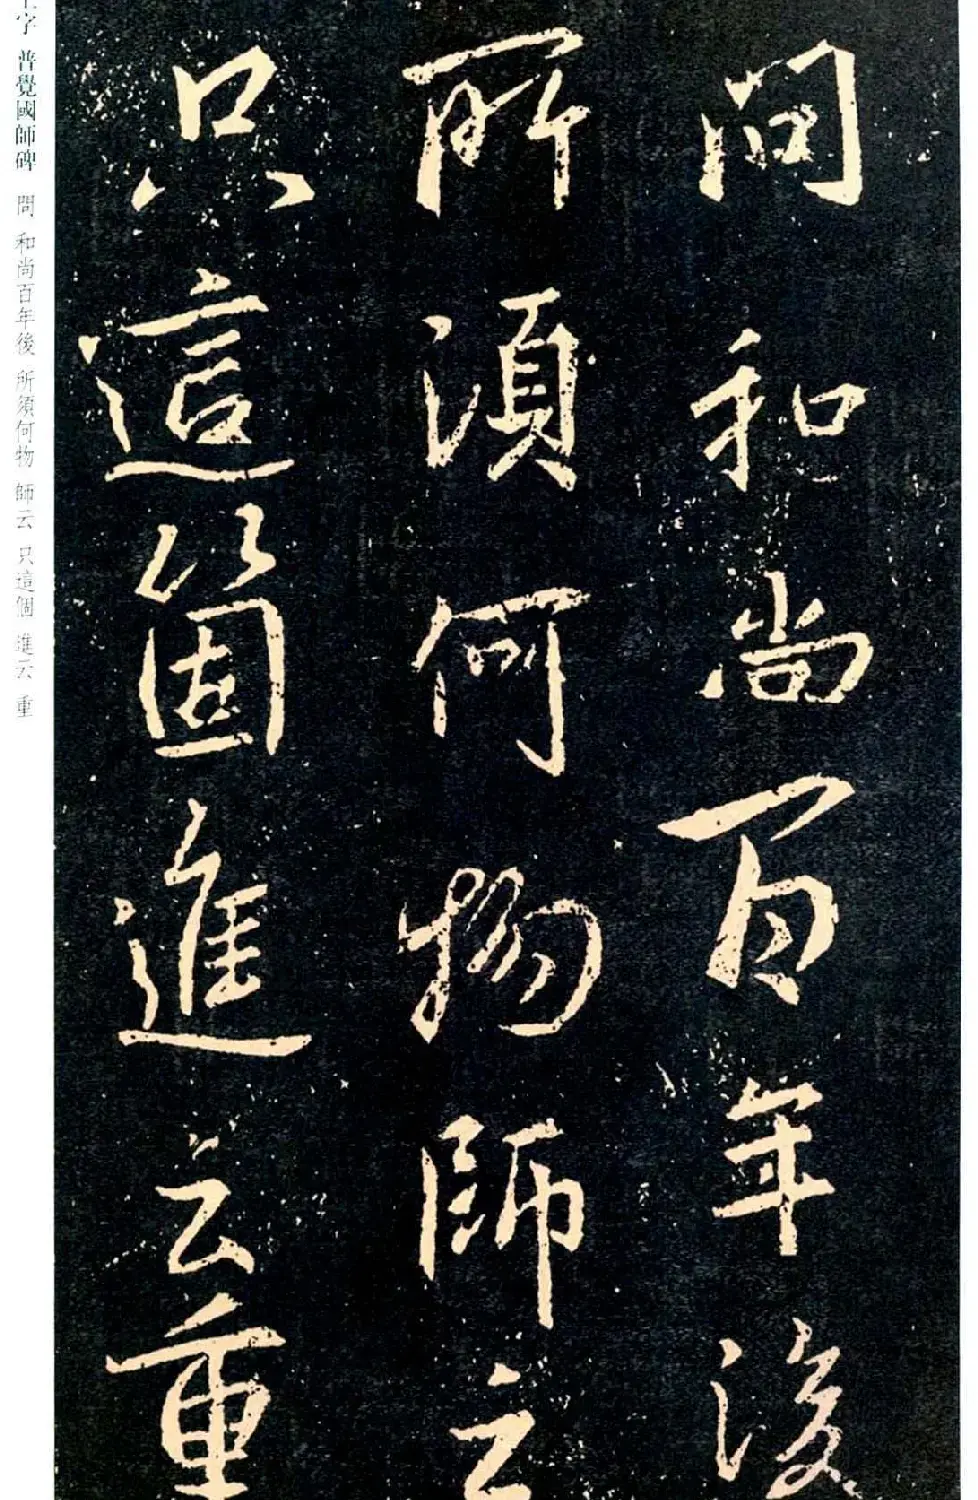 問和尚百年後
所須何物師云
只這箇進云重
字 普覺國師碑 問 和尚百年後 所須何物 師云 只這個 進云 重